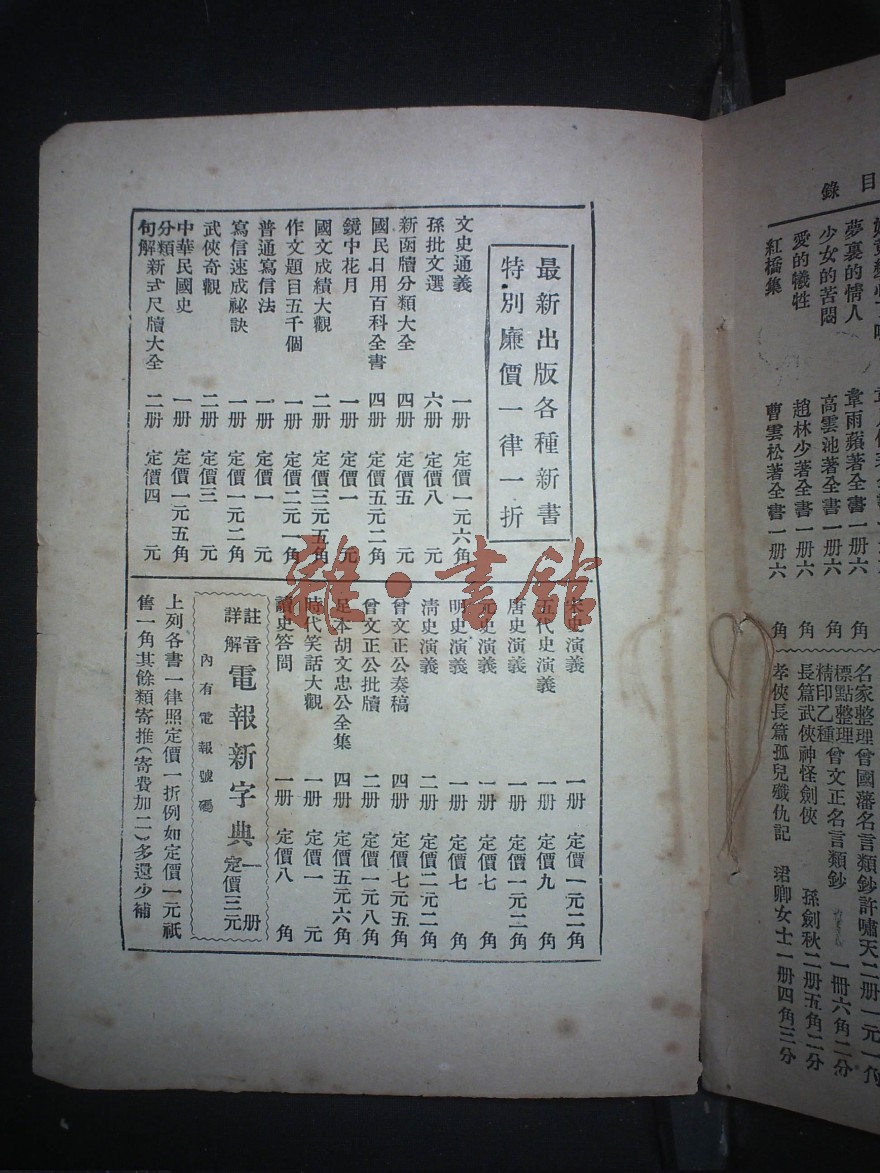 目錄
夢裏的情人 韋雨蘋著全書一册六角
少女的苦悶 高雲池著全書一册六角
愛的犧牲 趙林少著全書一册六角
紅橋集 曹雲松著全書一册六角
名家整理曾國藩名言類鈔許嘯天二册一元一
標點整理
精印乙種曾文正名言類鈔 一冊六角二分
長篇武俠神怪劍俠 孫劍秋二册五角二分
孝俠長篇孤兒殲仇記 珺卿女士一册四角三分
最新出版各種新書
特別廉價一律一折
文史通義 一册 定價一元六角
孫批文選 六册 定價八元
新函牘分類大全 四册 定價五元
國民日用百科全書 四册 定價五元二角
鏡中花月 一册 定價一元
國文成績大觀 二册 定價三元五角
作文題目五千個 一册 定價二元一角
普通寫信法 一册 定價一元
寫信速成祕訣 一册 定價一元二角
武俠奇觀 二册 定價三元
中華民國史 一册 定價一元五角
分類
句解新式尺牘大全 二册 定價四元
宋史演義 一册 定價一元二角
五代史演義 一册 定價九角
唐史演義 一册 定價一元二角
元史演義 一册 定價七角
明史演義 一册 定價七角
清史演義 二册 定價二元二角
曾文正公奏稿 四册 定價七元五角
曾文正公批牘 二册 定價一元八角
足本胡文忠公全集 四册 定價五元六角
時代笑話大觀 一册 定價一元
讀史答問 一册 定價八角
註音
詳解電報新字典 一册 定價三元
內有電報號碼
上列各書一律照定價一折例如定價一元祇
售一角其餘類寄推(寄費加二)多還少補
雜·書館